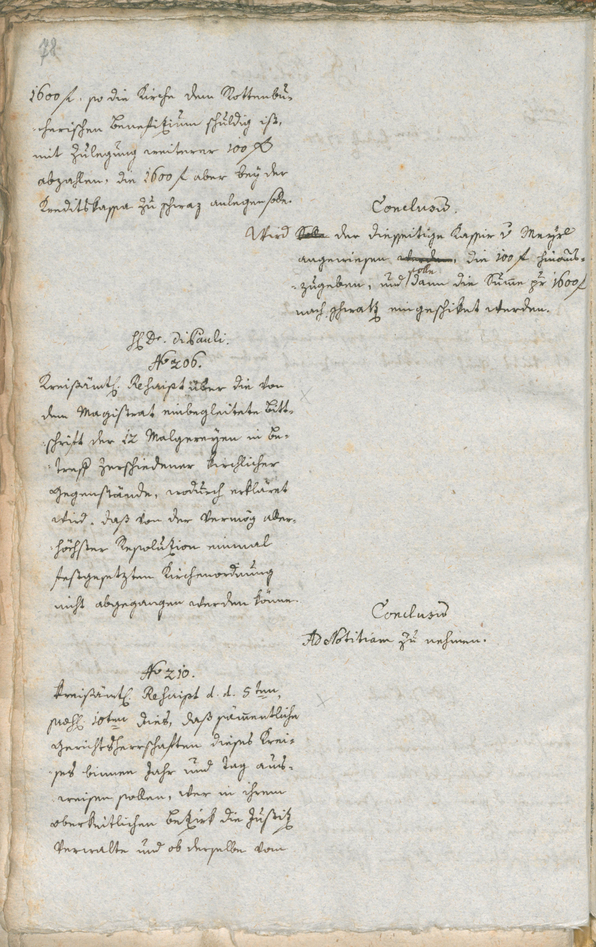 78.
1600 f. so die Kirche dem Rottenbu-
cherischen Benefizium schuldig ist,
mit Zulegung weiterer 100 f
abzahlen, die 1600 f aber bey der
Kreditskassa zu Schwaz anlegen solle.
Conclusum.
Wird der diesseitige Kassier v Mayrl
angewiesen, die 100 f hinaus-
zugeben, und solle dann die Summe pr 1600 f
nach Schwatz eingeschiket werden.
H. Dr. Di Pauli.
No 206.
Kreisämtl. Reskript über die von
dem Magistrat einbegleitete Bitt-
schrift der 12 Malgereyen in Be-
treff zerschiedener kirchlicher
Gegenstände, wodurch erkläret
wird, daß von der vermög aller-
höchster Resoluzion einmal
festgesetzten Kirchenordnung
nicht abgegangen werden könne.
Conclusum
Ad Notitiam zu nehmen.
No 210.
Kreisämtl. Reskript d. d. 5ten,
10ten dies, daß sämmentliche
Gerichtsherrschaften dieses Krei-
ses binnen Jahr und Tag aus-
weisen sollen, wer in ihrem
oberkeitlichen Bezirk die Justitz
verwalte und ob derselbe vom